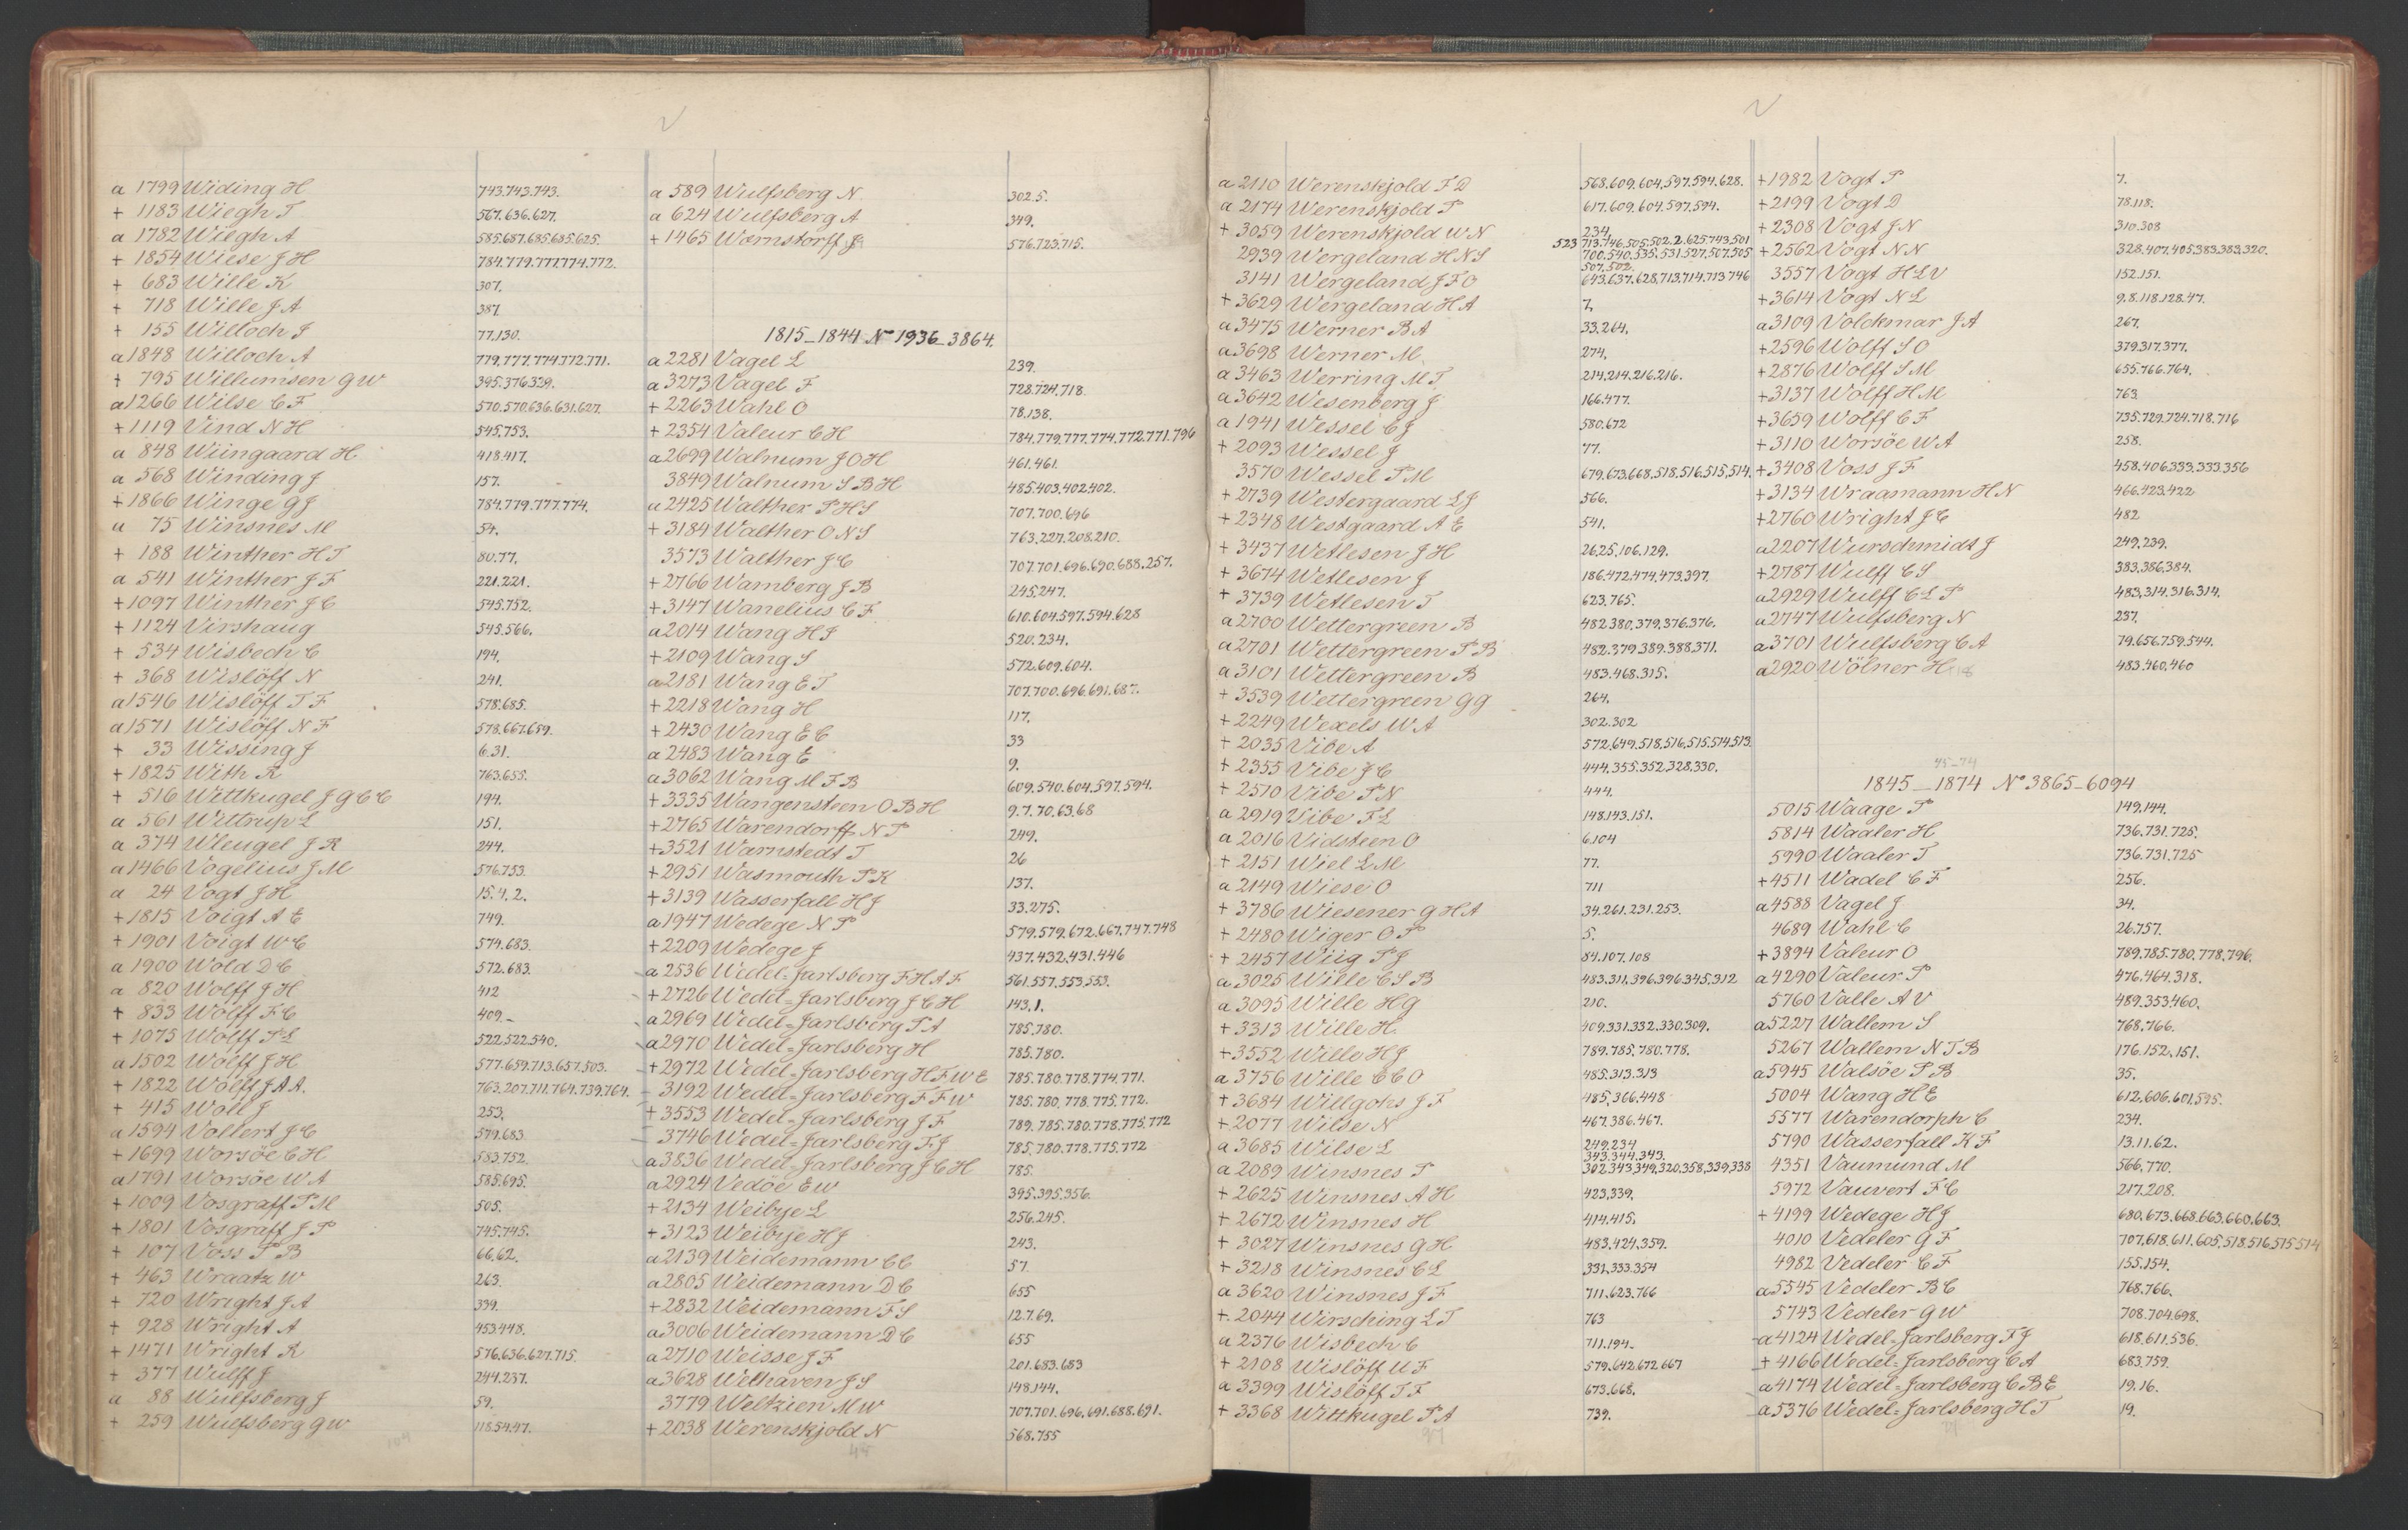 V
a 1799 Widing H 743.743.743.
+ 1183 Wiegh T 567.636.627.
a 1782 Wiegh A 585.657.635.635.625.
+ 1854 Wiese J H 784.779.777.774.772.
+ 683 Wille K 307.
+ 718 Wille J A 387.
+ 155 Willoch J 77.130.
a 1848 Willoch A 779.777.774.772.771.
+ 795 Willumsen G W 395.376.339.
a 1266 Wilse C F 570.570.636.631.627.
+ 1119 Vind N H 545.753.
a 848 Wiingaard H 418.417.
a 568 Winding J 157.
+ 1866 Winge G J 784.779.777.774.
a 75 Winsnes M 54.
+ 188 Winther H T 80.77.
a 541 Winther J F 221.221.
+ 1097 Winther J C 545.752.
+ 1124 Virshaug 545.566.
+ 534 Wisbech C 194.
+ 368 Wislöff N 241.
a 1546 Wislöff T F 578.685.
a 1571 Wislöff N F 578.667.659.
+ 33 Wissing J 6.31.
+ 1825 With R 763.655.
+ 516 Wittkugel J G C C 194.
a 561 Wittrup L 151.
a 374 Wleugel J R 244.
a 1466 Vogelius J M 576.753.
a 24 Vogt J H 15.4.2.
+ 1815 Voigt A E 749.
+ 1901 Voigt W C 579.683.
a 1900 Wold D C 572.683.
a 820 Wolff J H 412
+ 833 Wolff F C 409.-
+ 1075 Wolff P L 522.522.540.
a 1502 Wolff J H 577.659.713.657.503.
+ 1822 Wolff J A A. 763.207.711.764.739.764.
+ 415 Woll J 253.
a 1594 Vollert J C 579.683.
+ 1699 Worsöe C H 583.752.
a 1791 Worsöe W A 585.695.
+ 1009 Vosgraff P M 505.
+ 1801 Vosgraff J P 745.745.
+ 107 Voss P B 66.62.
+ 463 Wraatz W 263.
+ 720 Wright J A 339.
+ 928 Wright A 453.448.
+ 1471 Wright R 576.636.627.715.
+ 377 Wulff J 244.237.
a 88 Wulfsberg J 59.
+ 259 Wulfsberg G W 118.54.47.
a 589 Wulfsberg N 302.5.
a 624 Wulfsberg A 349.
+ 1465 Wørnstorff J 576.723.715.
1815_1844 No 1936_3864.
a 2281 Vagel L 239.
a 3273 Vagel F 728.724.718.
+ 2263 Wahl O 78.138.
+ 2354 Valeur C H 784.779.777.774.772.771.796
a 2699 Walnum J O H 461.461.
3849 Walnum S B H 485.403.402.402.
a 2425 Walther P H S 707.700.696
+ 3184 Walther O N S 763.227.208.210.
3573 Walther J C 707.701.696.690.688.257.
+ 2766 Wamberg J B 245.247.
+ 3147 Wanelius C F 610.604.597.594.628
a 2014 Wang H J 520.234.
+ 2109 Wang S 572.609.604.
a 2181 Wang E T 707.700.696.691.687.
+ 2218 Wang H 117.
+ 2430 Wang E C 33
a 2483 Wang E 9.
a 3062 Wang M F B 609.540.604.597.594.
+ 3335 Wangensteen O B H 9.7.70.63.68
+ 2765 Warendorff N P 249.
+ 3521 Warnstedt T 26
+ 2951 Wasmouth P K 137.
+ 3139 Wasserfall H J 33.275.
a 1947 Wedege N P 579.579.672.667.747.748
+ 2209 Wedege J 437.432.431.446
a 2536 Wedel=Jarlsberg F H A F 561.557.553.553.
+ 2726 Wedel=Jarlsberg J C H 143.1.
a 2969 Wedel=Jarlsberg P A 785.780.
a 2970 Wedel=Jarlsberg H 785.780.
+ 2972 Wedel=Jarlsberg H F W E 785.780.778.774.771.
3192 Wedel=Jarlsberg F F W 785.780.778.775.772.
+ 3553 Wedel=Jarlsberg J F 789.785.780.778.775.772
3746 Wedel=Jarlsberg F J 785.780.778.775.772
a 3836 Wedel=Jarlsberg J C H 785.
a 2924 Vedöe E W 395.395.356.
+ 2134 Weibye L 256.245.
+ 3123 Weibye H J 243.
a 2139 Weidemann C C 57.
a 2805 Weidemann D C 655
+ 2832 Weidemann F S 12.7.69.
a 3006 Weidemann D C 655
a 2710 Weisse J F 201.683.683
a 3628 Welhaven J S 148.144.
3779 Weltzien M W 707.701.696.691.688.691.
+ 2038 Werenskjold N 568.755
V
a 2110 Werenskjold F D 568.609.604.597.594.628.
a 2174 Werenskjold P 617.609.604.597.594.
+ 3059 Werenskjold W N 234.
2939 Wergeland H N S 523 713.746.505.502.2.625.743.501 700.540.535.531.527.507.505 507.502.
3141 Wergeland J F O 643.637.628.713.714.713.746
+ 3629 Wergeland H A 7.
a 3475 Werner B A 33.264.
a 3698 Werner M. 274.
a 3463 Werring M T. 214.214.216.216.
a 3642 Wesenberg J 166.477.
a 1941 Wessel C J 580.672
+ 2093 Wessel J 77.
3570 Wessel P M 679.673.668.518.516.515.514.
+ 2739 Westergaard L J 566.
+ 2348 Westgaard A E 541.
+ 3437 Wetlesen J H 26.25.106.129.
+ 3674 Wetlesen J 186.472.474.473.397.
+ 3739 Wetlesen T 623.765.
a 2700 Wettergreen B 482.380.379.376.376.
a 2701 Wettergreen P B 482.379.389.388.371.
a 3101 Wettergreen B 483.468.315.
+ 3539 Wettergreen G G 264.
+ 2249 Wexels W A 302.302
+ 2035 Vibe A 572.649.518.516.515.514.513.
+ 2355 Vibe J C 444.355.352.328.330.
+ 2510 Vibe P N 444.
a 2919 Vibe F L 148.143.151.
a 2016 Vidsteen O 6.104
+ 2151 Wiel L M 77.
a 2149 Wiese O 711
+ 3786 Wiesener G H A 34.261.231.253.
+ 2480 Wiger O P 5.
+ 2457 Wiig P J 84.107.108
a 3025 Wille C S B 483.311.396.396.345.312
a 3095 Wille H G 210.
+ 3313 Wille H. 409.331.332.330.309.
+ 3552 Wille H J 789.785.780.778.
a 3756 Wille C C O 485.313.313
+ 3684 Willgohs J F 485.366.448
+ 2077 Wilse N 467.386.467.
a 3685 Wilse L 249.234
a 2089 Winsnes P 343.344.343. 302.343.349.320.358.339.338
+ 2625 Winsnes A H 423.339.
+ 2672 Winsnes H 414.415.
+ 3027 Winsnes G H 483.424.359.
+ 3218 Winsnes C L 331.333.354
a 3620 Winsnes J F 711.623.766
+ 2044 Wirsching L T 763
a 2376 Wisbech C 711.194.
+ 2108 Wislöff U F 579.642.672.667
a 3399 Wislöff T F 673.668.
+ 3368 Wittkugel P A 739.
+ 1982 Vogt P 7.
+ 2199 Vogt D 78.118.
+ 2308 Vogt J N 310.308
+ 2562 Vogt N N 328.407.405.383.383.320.
3557 Vogt H L V 152.151.
+ 3614 Vogt N L 9.8.118.128.47.
a 3109 Volckmar J A 267.
+ 2596 Wolff S O 379.317.377.
+ 2876 Wolff S M 655.766.764.
+ 3137 Wolff H M 763
+ 3659 Wolff C F 735.729.724.718.716
+ 3110 Worsöe W A 258.
+ 3408 Voss J F 458.406.333.333.356
+ 3134 Wraamann H N 466.423.422
+ 2760 Wright J C 482
a 2207 Wurschmidt J 249.239.
+ 2787 Wulff C S 383.386.384.
a 2929 Wulff C L P 483.314.316.314.
a 2747 Wulfsberg N 237.
a 3701 Wulfsberg C A 79.656.759.544.
a 2920 Wölner H 483.460.460
45-74
1845_1874 No 3865-6094
5015 Waage P 149.144.
5814 Waaler H 736.731.725.
5990 Waaler T 736.731.725
+ 4511 Wadel C F 256.
a 4588 Vagel J 34.
4689 Wahl C 26.757.
+ 3894 Valeur O 789.785.780.778.796.
a 4290 Valeur P 476.464.318.
5760 Valle A V 489.353.460.
a 5227 Wallem S 768.766.
5267 Wallem N T B 176.152.151.
a 5945 Walsöe P B 35.
5004 Wang H E 612.606.601.595.
5577 Warendorph C 234.
5790 Wasserfall K F 13.11.62.
4351 Vaumund M 566.770.
5972 Vauvert F C 217.208.
+ 4199 Wedege H J 680.673.668.663.660.663.
4010 Vedeler G F 707.618.611.605.518.516.515.514
4982 Vedeler C F 155.154.
a 5545 Vedeler B C 768.766.
5743 Vedeler G W 708.704.698.
a 4124 Wedel=Jarlsberg F J 618.611.536.
+ 4166 Wedel=Jarlsberg C A 683.759.
a 4174 Wedel=Jarlsberg C B E 19.16.
a 5376 Wedel=Jarlsberg H T 19.